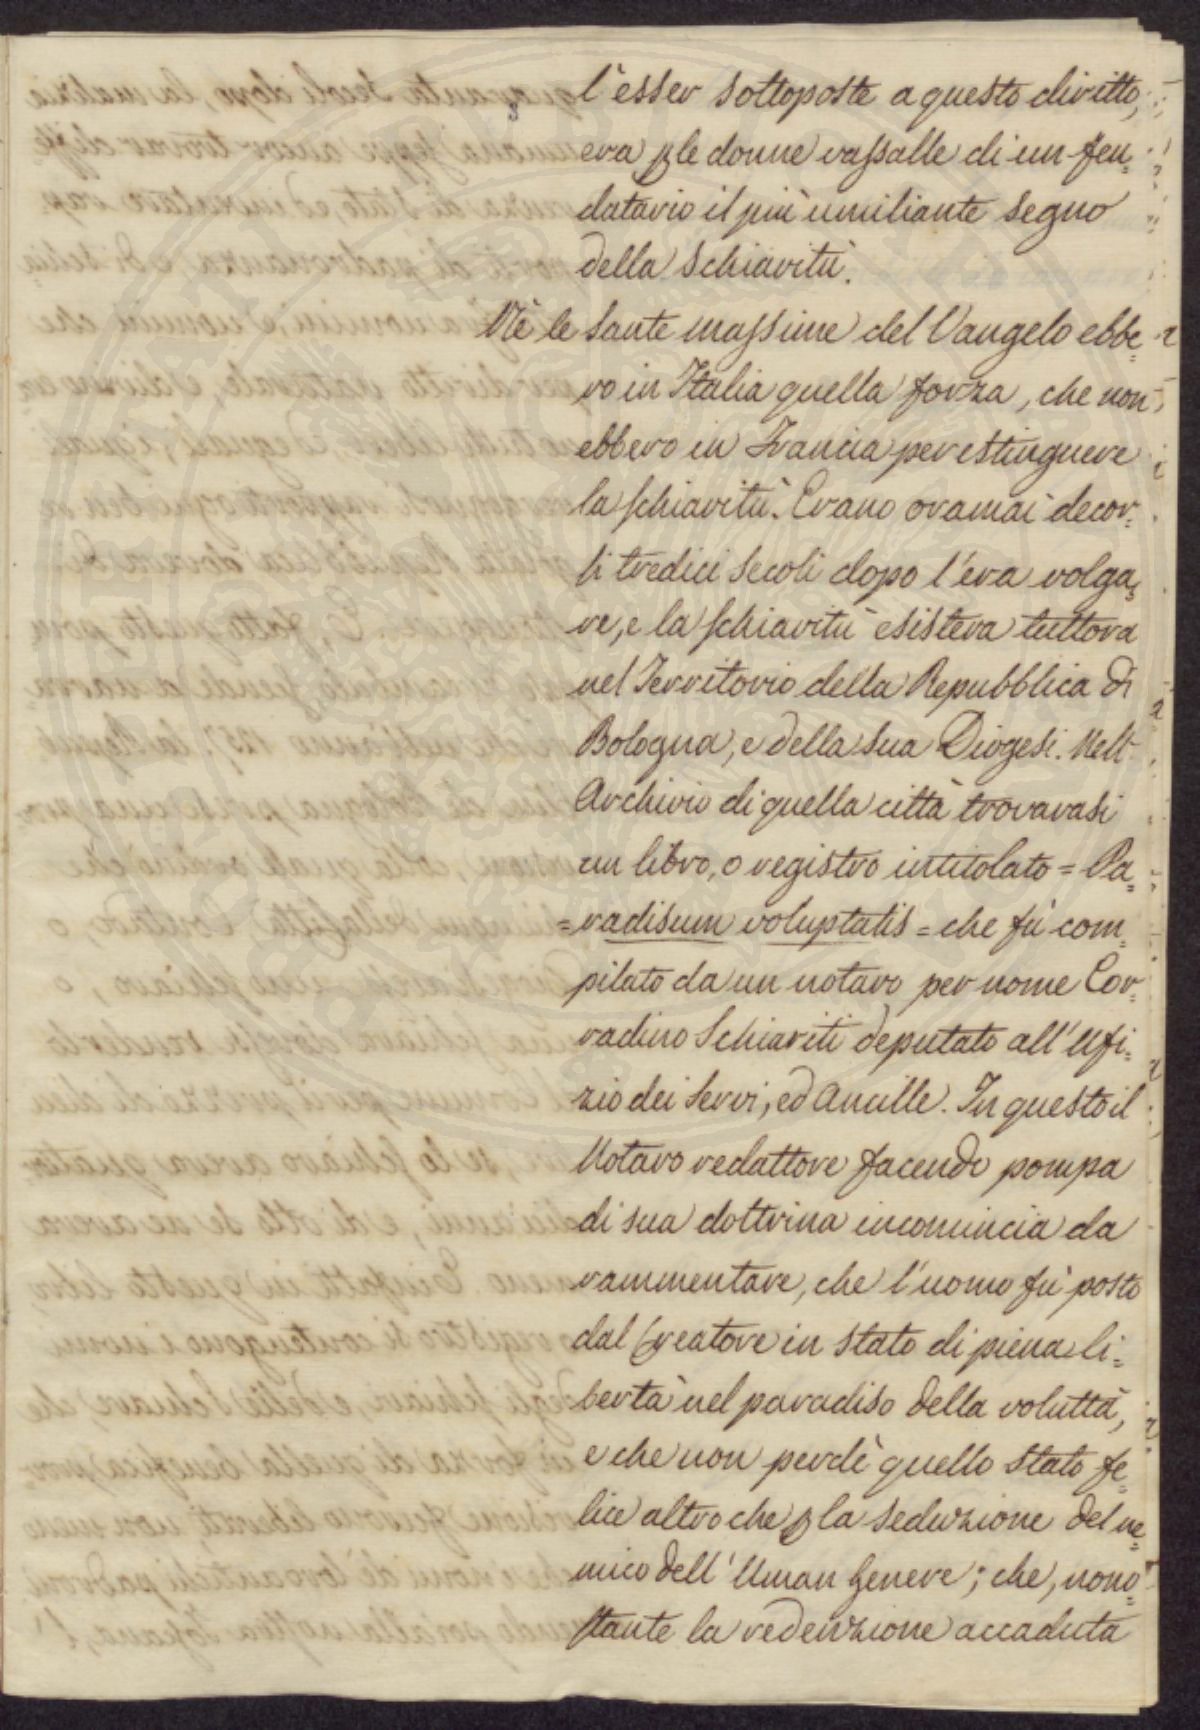 l'esser sottoposte a questo diritto,
era ꝑ le donne vassalle di un feu=
datario il più umiliante segno
della schiavitù.
Nè le sante massime del Vangelo ebbe=
ro in Italia quella forza, che non
ebbero in Francia per estinguere
la schiavitù. Erano oramai decor=
si tredici secoli dopo l'era volga=
re, e la schiavitù esisteva tuttora
nel Territorio della Repubblica di
Bologna, e della sua Diogesi. Nell'
Archivio di quella città trovavasi
un libro, o registro intitolato = Pa=
=radisum voluptatis = che fù com=
pilato da un notaro per nome Cor=
radino Schiariti deputato all'Ufi=
zio dei Servi, ed Ancille. In questo il
Notaro redattore facendo pompa
di sua dottrina incomincia da
rammentare, che l'uomo fù posto
dal Creatore in stato di piena li=
bertà nel paradiso della voluttà,
e che non perdè quello stato fe=
lice altro che ꝑ la seduzione del ne=
mico dell'Uman Genere; che, nono=
stante la redenzione accaduta